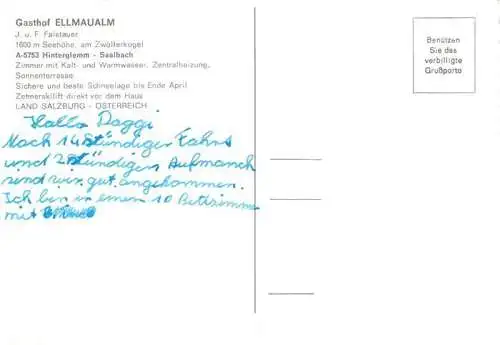 Gasthof ELLMAUALM
J. u. F. Faistauer
1600 m Seehöhe, am Zwölferkogel
A-5753 Hinterglemm - Saalbach
Zimmer mit Kalt- und Warmwasser, Zentralheizung,
Sonnenterrasse
Sichere und beste Schneelage bis Ende April
Zehnerskilift direkt vor dem Haus
LAND SALZBURG - ÖSTERREICH
Hallo Daggi
Nach 14 Stündiger Fahrt
und 2 Stündigen Aufmarsch
sind wir gut angekommen.
Ich bin in einem 10 Bettzimmer
mit
Benützen
Sie das
verbilligte
Grußporto